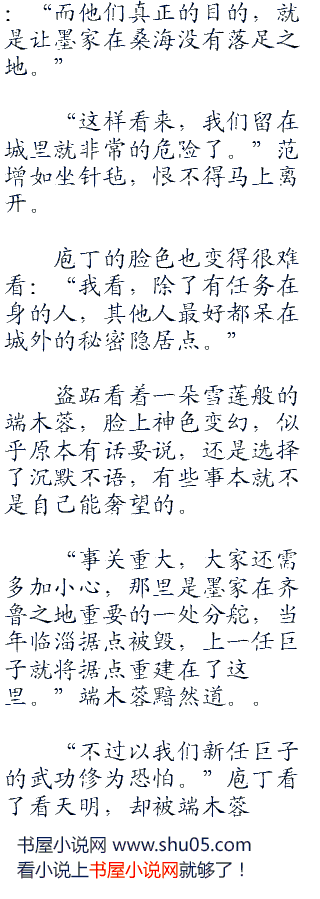 ：“而他们真正的目的，就
是让墨家在桑海没有落足之
地。”
“这样看来，我们留在
城里就非常的危险了。”范
增如坐针毡，恨不得马上离
开。
庖丁的脸色也变得很难
看：“我看，除了有任务在
身的人，其他人最好都呆在
城外的秘密隐居点。”
盗跖看着一朵雪莲般的
端木蓉，脸上神色变幻，似
乎原本有话要说，还是选择
了沉默不语，有些事本就不
是自己能奢望的。
“事关重大，大家还需
多加小心，那里是墨家在齐
鲁之地重要的一处分舵，当
年临淄据点被毁，上一任巨
子就将据点重建在了这
里。”端木蓉黯然道。。
“不过以我们新任巨子
的武功修为恐怕。”庖丁看
了看天明，却被端木蓉
书屋小说网 www.shu05.com
看小说上书屋小说网就够了！